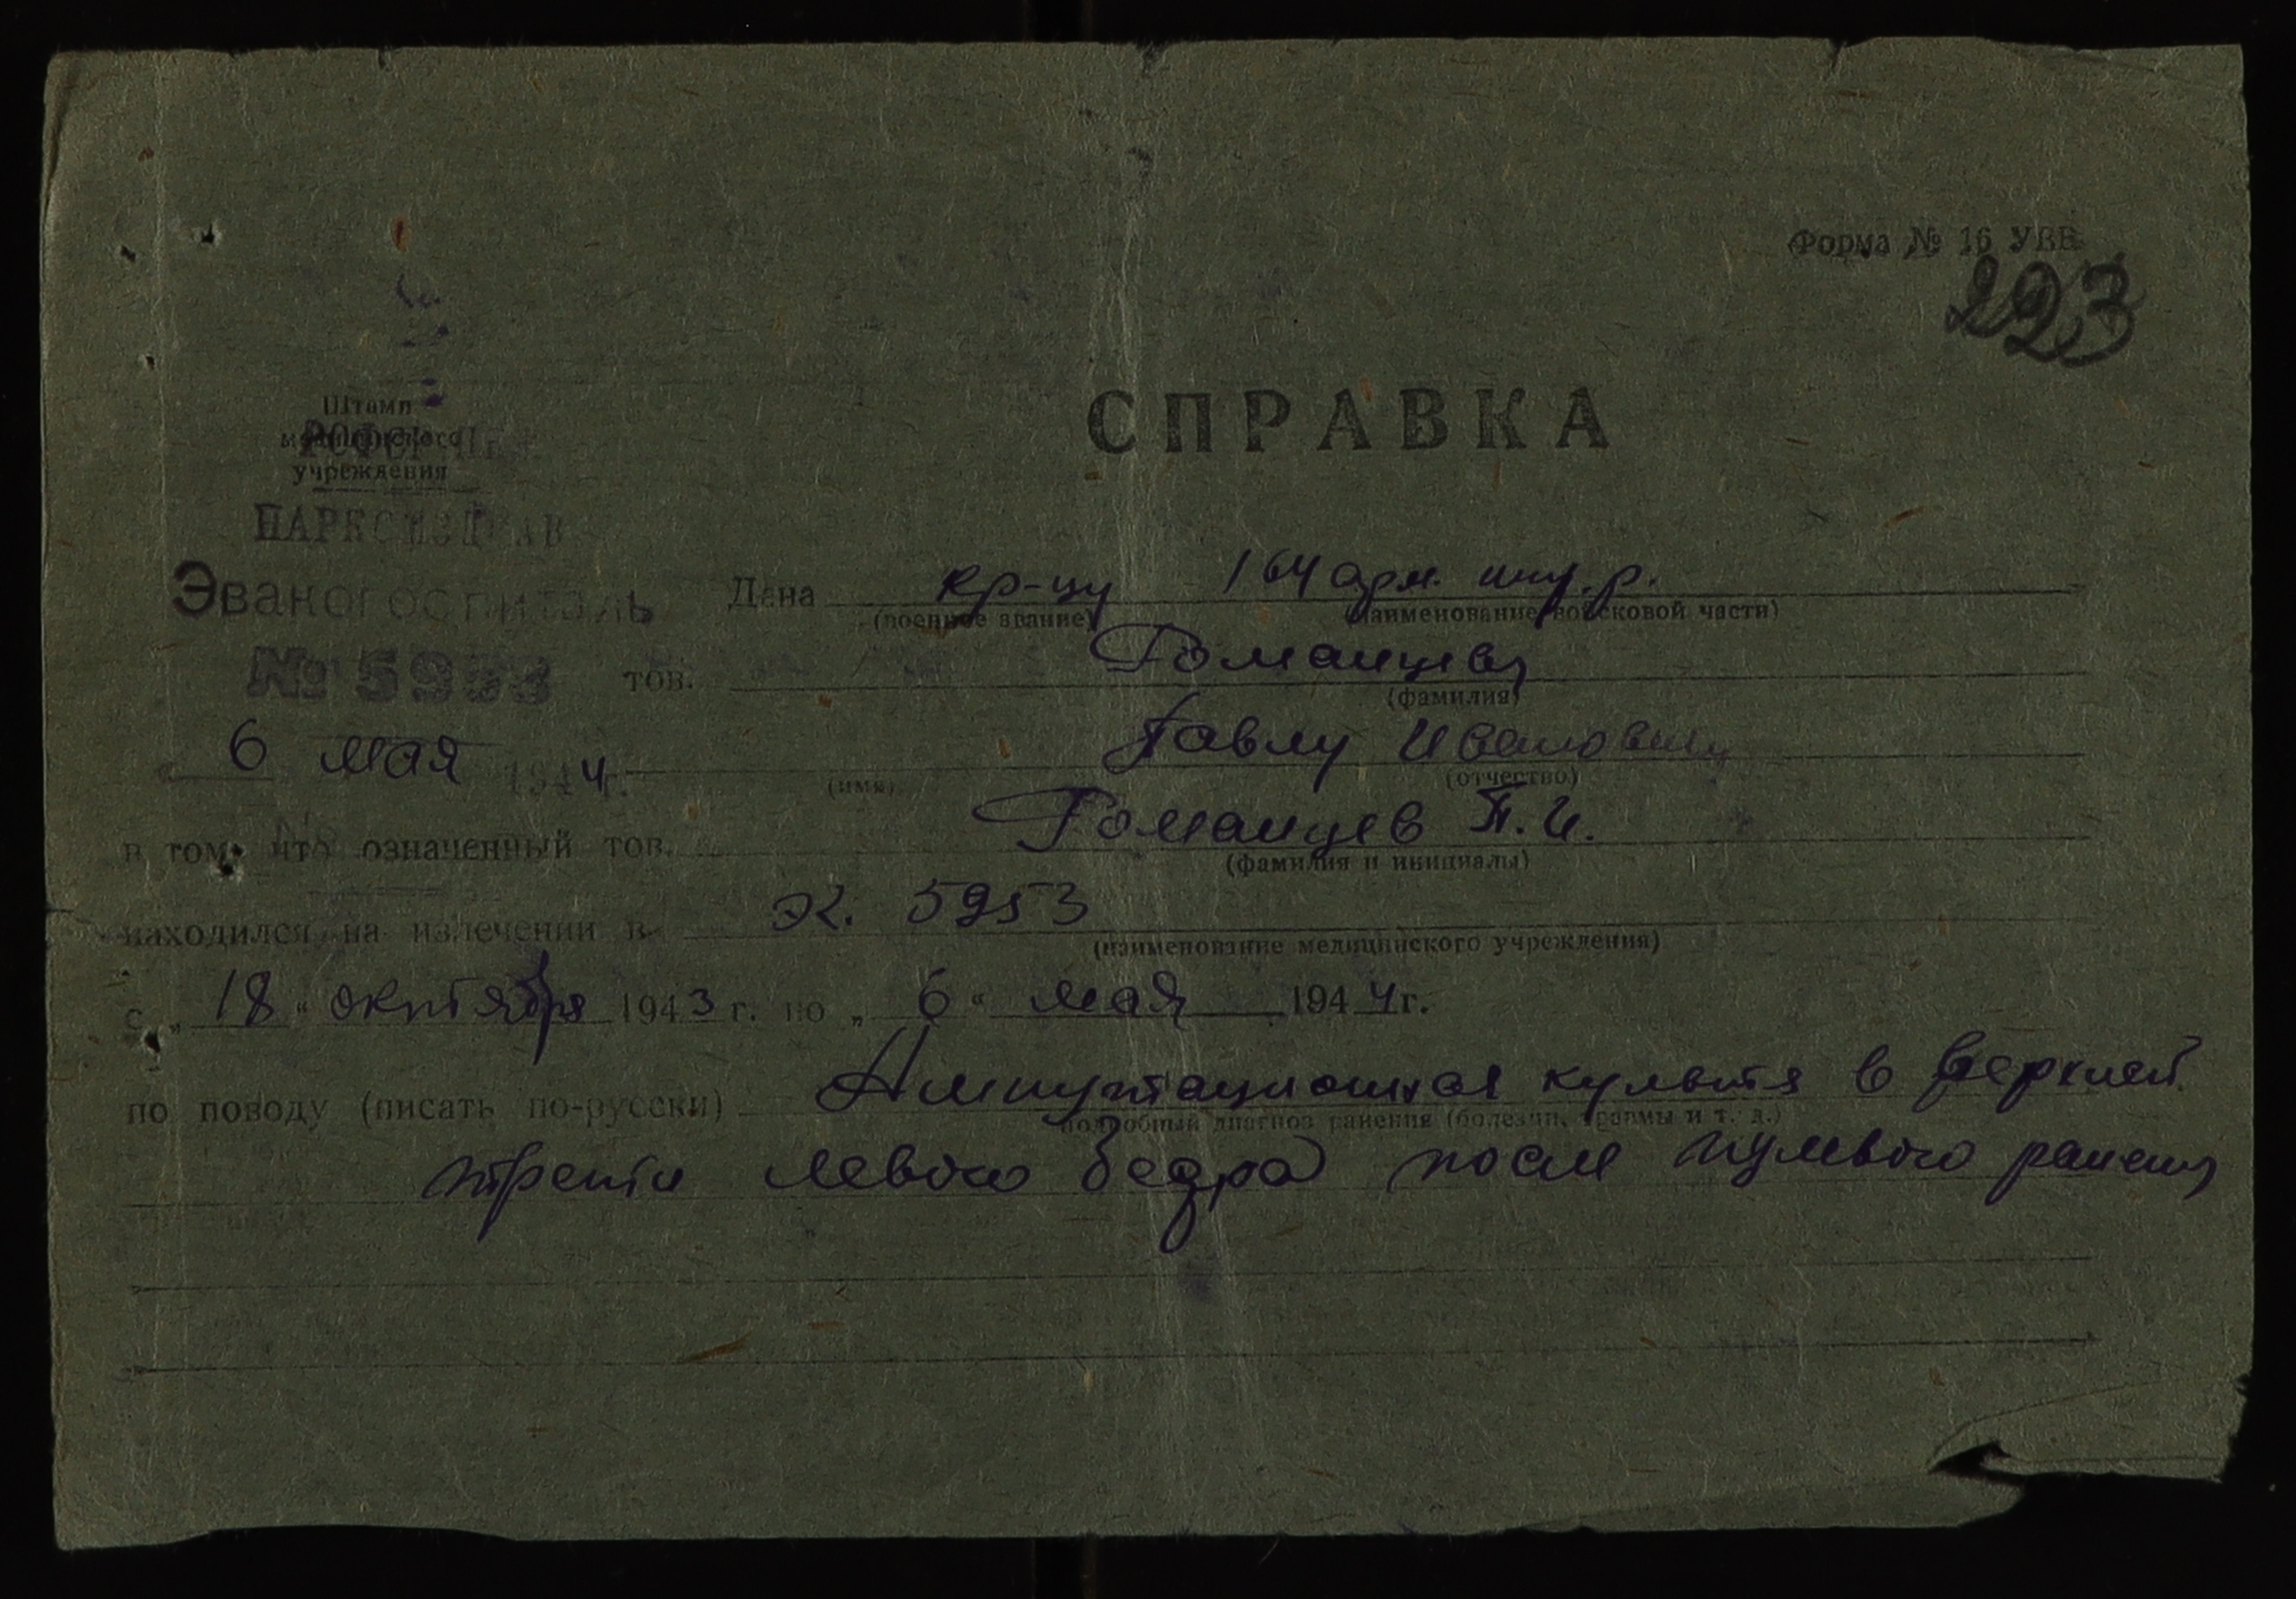 Форма № 16 УВВ
223
Штамп
медицинского
учреждения
РСФСР
СПРАВКА
НАРКОМЗДРАВ
Эвакогоспиталь
№ 5953
Дана кр-цу 164 арм.
(военное звание) (наименование войсковой части)
тов. Романцеву
(фамилия)
Павлу Ивановичу
6 мая 1944г.
(имя) (отчество)
в том, что означенный тов. Романцев П. И.
(фамилия и инициалы)
находился на излечении в 5953
(наименование медицинского учреждения)
с „18“ октября 1943 г. по „6“ мая 1944г.
по поводу (писать по-русски) Ампутационная культя в верхней
подробный диагноз ранения (болезни, травмы и т. д.)
трети левого бедра после пулевого ранения